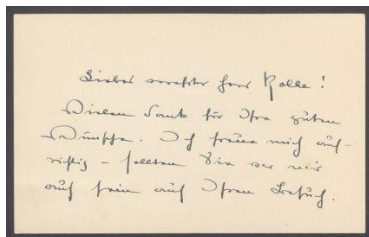 Lieber verehrter Herr Kolle!
Vielen Dank für Ihre guten
Wünsche. Ich freue mich auf-
richtig – sollten Sie mir
auch auf Ihren Besuch.